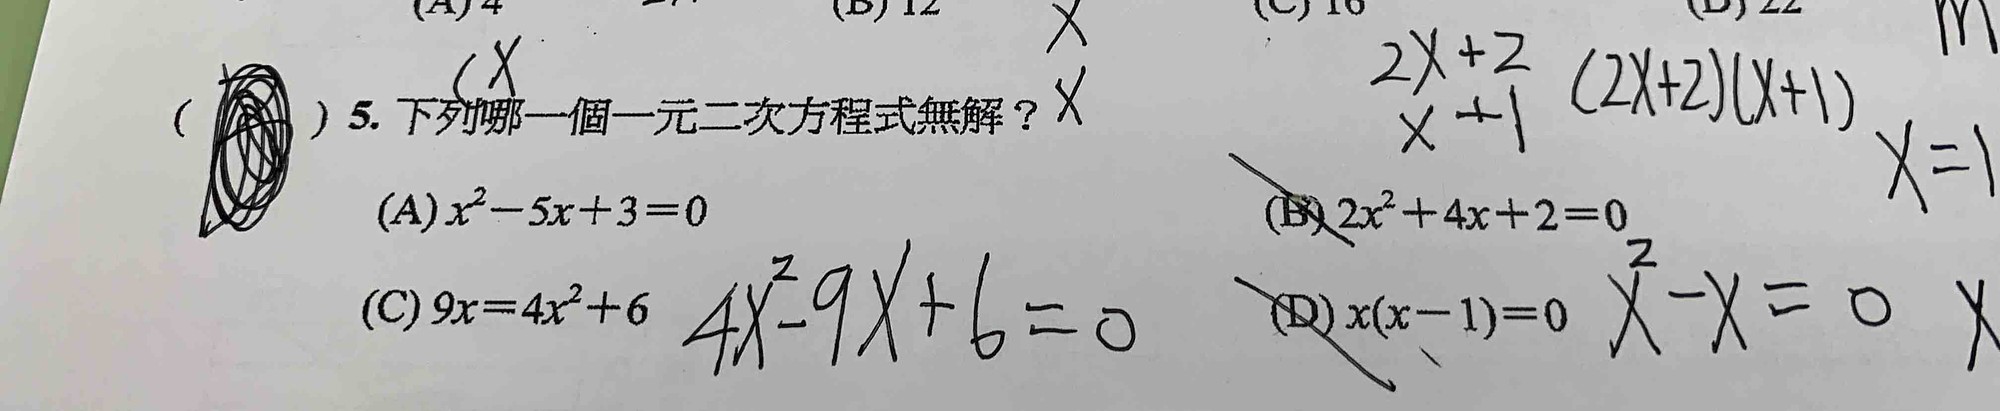 (A) 4 (B) 12 (C) 16 (D) 22
(x x m
2x+2 (2x+2)(x+1)
( ) 5. 下列哪一個一元二次方程式無解？ x x+1
x=1
(A) x²－5x＋3＝0 (B) 2x²＋4x＋2＝0
(C) 9x＝4x²＋6 4x²-9x+6=0 (D) x(x－1)＝0 x²-x=0 x